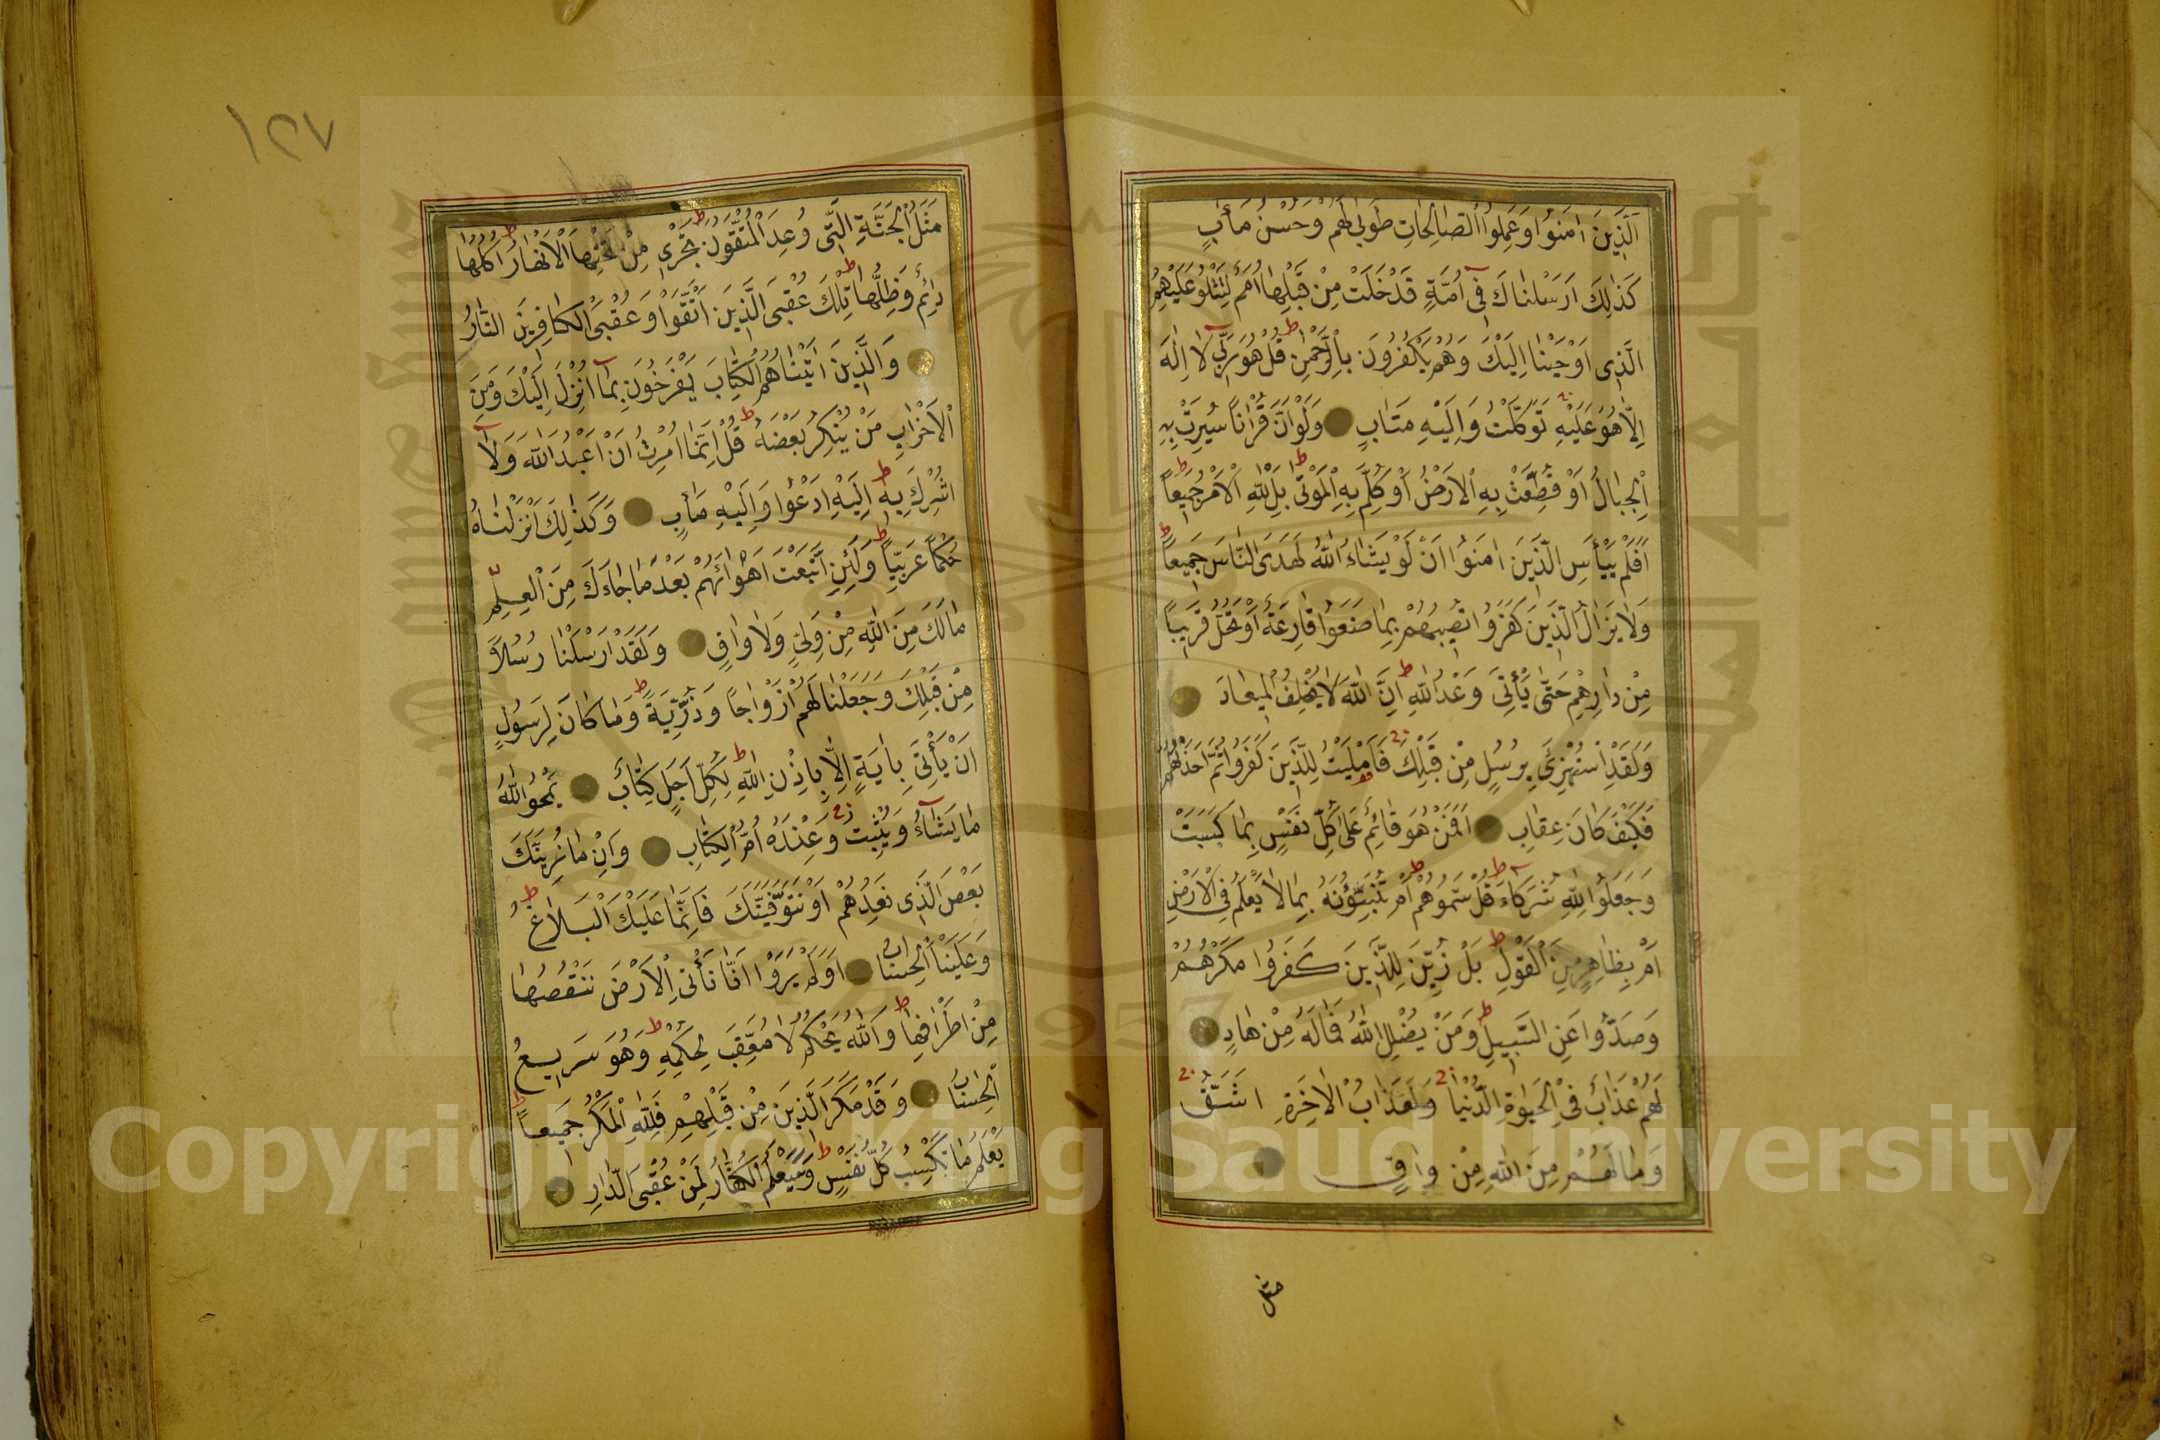 اَلَّذِينَ اٰمَنُوا وَعَمِلُوا الصَّالِحَاتِ طُوبٰى لَهُمْ وَحُسْنُ مَاٰبٍ
كَذٰلِكَ اَرْسَلْنَاكَ فِى اُمَّةٍ قَدْ خَلَتْ مِنْ قَبْلِهَا اُمَمٌ لِتَتْلُوَ عَلَيْهِمُ
الَّذِى اَوْحَيْنَا اِلَيْكَ وَهُمْ يَكْفُرُونَ بِالرَّحْمٰنِ ط قُلْ هُوَ رَبِّى لَا اِلٰهَ
اِلَّا هُوَ عَلَيْهِ تَوَكَّلْتُ وَاِلَيْهِ مَتَابِ وَلَوْ اَنَّ قُرْاٰنًا سُيِّرَتْ بِهِ
الْجِبَالُ اَوْ قُطِّعَتْ بِهِ الْاَرْضُ اَوْ كُلِّمَ بِهِ الْمَوْتٰى ط بَلْ لِلّٰهِ الْاَمْرُ جَمِيعًا ط
اَفَلَمْ يَيْأَسِ الَّذِينَ اٰمَنُوا اَنْ لَوْ يَشَاءُ اللّٰهُ لَهَدَى النَّاسَ جَمِيعًا ط
وَلَا يَزَالُ الَّذِينَ كَفَرُوا تُصِيبُهُمْ بِمَا صَنَعُوا قَارِعَةٌ اَوْ تَحُلُّ قَرِيبًا
مِنْ دَارِهِمْ حَتّٰى يَأْتِىَ وَعْدُ اللّٰهِ ط اِنَّ اللّٰهَ لَا يُخْلِفُ الْمِيعَادَ
وَلَقَدِ اسْتُهْزِئَ بِرُسُلٍ مِنْ قَبْلِكَ فَاَمْلَيْتُ لِلَّذِينَ كَفَرُوا ثُمَّ اَخَذْتُهُمْ
فَكَيْفَ كَانَ عِقَابِ اَفَمَنْ هُوَ قَائِمٌ عَلٰى كُلِّ نَفْسٍ بِمَا كَسَبَتْ
وَجَعَلُوا لِلّٰهِ شُرَكَاءَ ط قُلْ سَمُّوهُمْ ط اَمْ تُنَبِّئُونَهُ بِمَا لَا يَعْلَمُ فِى الْاَرْضِ
اَمْ بِظَاهِرٍ مِنَ الْقَوْلِ ط بَلْ زُيِّنَ لِلَّذِينَ كَفَرُوا مَكْرُهُمْ
وَصَدُّوا عَنِ السَّبِيلِ ط وَمَنْ يُضْلِلِ اللّٰهُ فَمَا لَهُ مِنْ هَادٍ
لَهُمْ عَذَابٌ فِى الْحَيٰوةِ الدُّنْيَا وَلَعَذَابُ الْاٰخِرَةِ اَشَقُّ
وَمَا لَهُمْ مِنَ اللّٰهِ مِنْ وَاقٍ
مثل
١٢٧
مَثَلُ الْجَنَّةِ الَّتِى وُعِدَ الْمُتَّقُونَ ط تَجْرِى مِنْ تَحْتِهَا الْاَنْهَارُ ط اُكُلُهَا
دَائِمٌ وَظِلُّهَا ط تِلْكَ عُقْبَى الَّذِينَ اتَّقَوْا وَعُقْبَى الْكَافِرِينَ النَّارُ
وَالَّذِينَ اٰتَيْنَاهُمُ الْكِتَابَ يَفْرَحُونَ بِمَا اُنْزِلَ اِلَيْكَ وَمِنَ
الْاَحْزَابِ مَنْ يُنْكِرُ بَعْضَهُ ط قُلْ اِنَّمَا اُمِرْتُ اَنْ اَعْبُدَ اللّٰهَ وَلَا
اُشْرِكَ بِهِ ط اِلَيْهِ اَدْعُوا وَاِلَيْهِ مَاٰبِ وَكَذٰلِكَ اَنْزَلْنَاهُ
حُكْمًا عَرَبِيًّا ط وَلَئِنِ اتَّبَعْتَ اَهْوَاءَهُمْ بَعْدَ مَا جَاءَكَ مِنَ الْعِلْمِ
مَا لَكَ مِنَ اللّٰهِ مِنْ وَلِىٍّ وَلَا وَاقٍ وَلَقَدْ اَرْسَلْنَا رُسُلًا
مِنْ قَبْلِكَ وَجَعَلْنَا لَهُمْ اَزْوَاجًا وَذُرِّيَّةً ط وَمَا كَانَ لِرَسُولٍ
اَنْ يَأْتِىَ بِاٰيَةٍ اِلَّا بِاِذْنِ اللّٰهِ ط لِكُلِّ اَجَلٍ كِتَابٌ يَمْحُو اللّٰهُ
مَا يَشَاءُ وَيُثْبِتُ وَعِنْدَهُ اُمُّ الْكِتَابِ وَاِنْ مَا نُرِيَنَّكَ
بَعْضَ الَّذِى نَعِدُهُمْ اَوْ نَتَوَفَّيَنَّكَ فَاِنَّمَا عَلَيْكَ الْبَلَاغُ ط
وَعَلَيْنَا الْحِسَابُ اَوَلَمْ يَرَوْا اَنَّا نَأْتِى الْاَرْضَ نَنْقُصُهَا
مِنْ اَطْرَافِهَا ط وَاللّٰهُ يَحْكُمُ لَا مُعَقِّبَ لِحُكْمِهِ ط وَهُوَ سَرِيعُ
الْحِسَابِ وَقَدْ مَكَرَ الَّذِينَ مِنْ قَبْلِهِمْ فَلِلّٰهِ الْمَكْرُ جَمِيعًا ط
يَعْلَمُ مَا تَكْسِبُ كُلُّ نَفْسٍ ط وَسَيَعْلَمُ الْكُفَّارُ لِمَنْ عُقْبَى الدَّارِ
جامعة الملك سعود
King Saud University
1957
Copyright © King Saud University